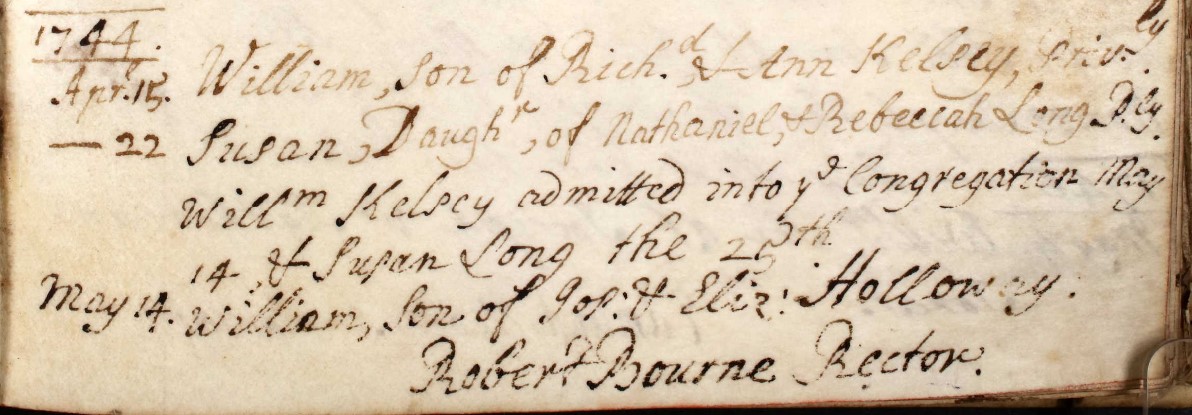 1744.
Apr: 15. William, Son of Rich.d, & Ann Kelsey, Priv.ly
— 22 Susan, Daughr, of Nathaniel, & Rebeccah Long D.ly.
Willm Kelsey admitted into ye Congregation May
14, & Susan Long the 25th
May 14. William, Son of Jos: & Eliz: Holloway.
Robert Bourne Rector.